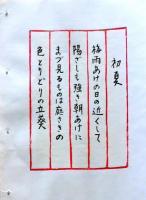 初夏
梅雨あけの日の近くして
陽ざしも強き朝あけに
まづ見るものは庭さきの
色とりどりの立葵